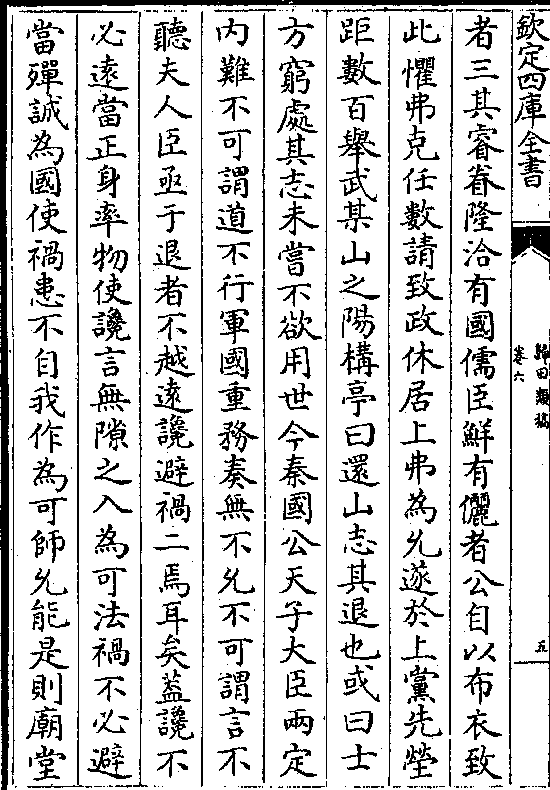 欽定四庫全書
歸田類稿
卷六
五
者三其睿眷隆洽有國儒臣鮮有儷者公自以布衣致
此懼弗克任數請致政休居上弗為允遂於上黨先塋
距數百舉武某山之陽構亭曰還山志其退也或曰士
方窮處其志未嘗不欲用世今秦國公天子大臣兩定
內難不可謂道不行軍國重務奏無不允不可謂言不
聽夫人臣亟于退者不越遠讒避禍二焉耳矣蓋讒不
必遠當正身率物使讒言無隙之入為可法禍不必避
當殫誠為國使禍患不自我作為可師允能是則廟堂